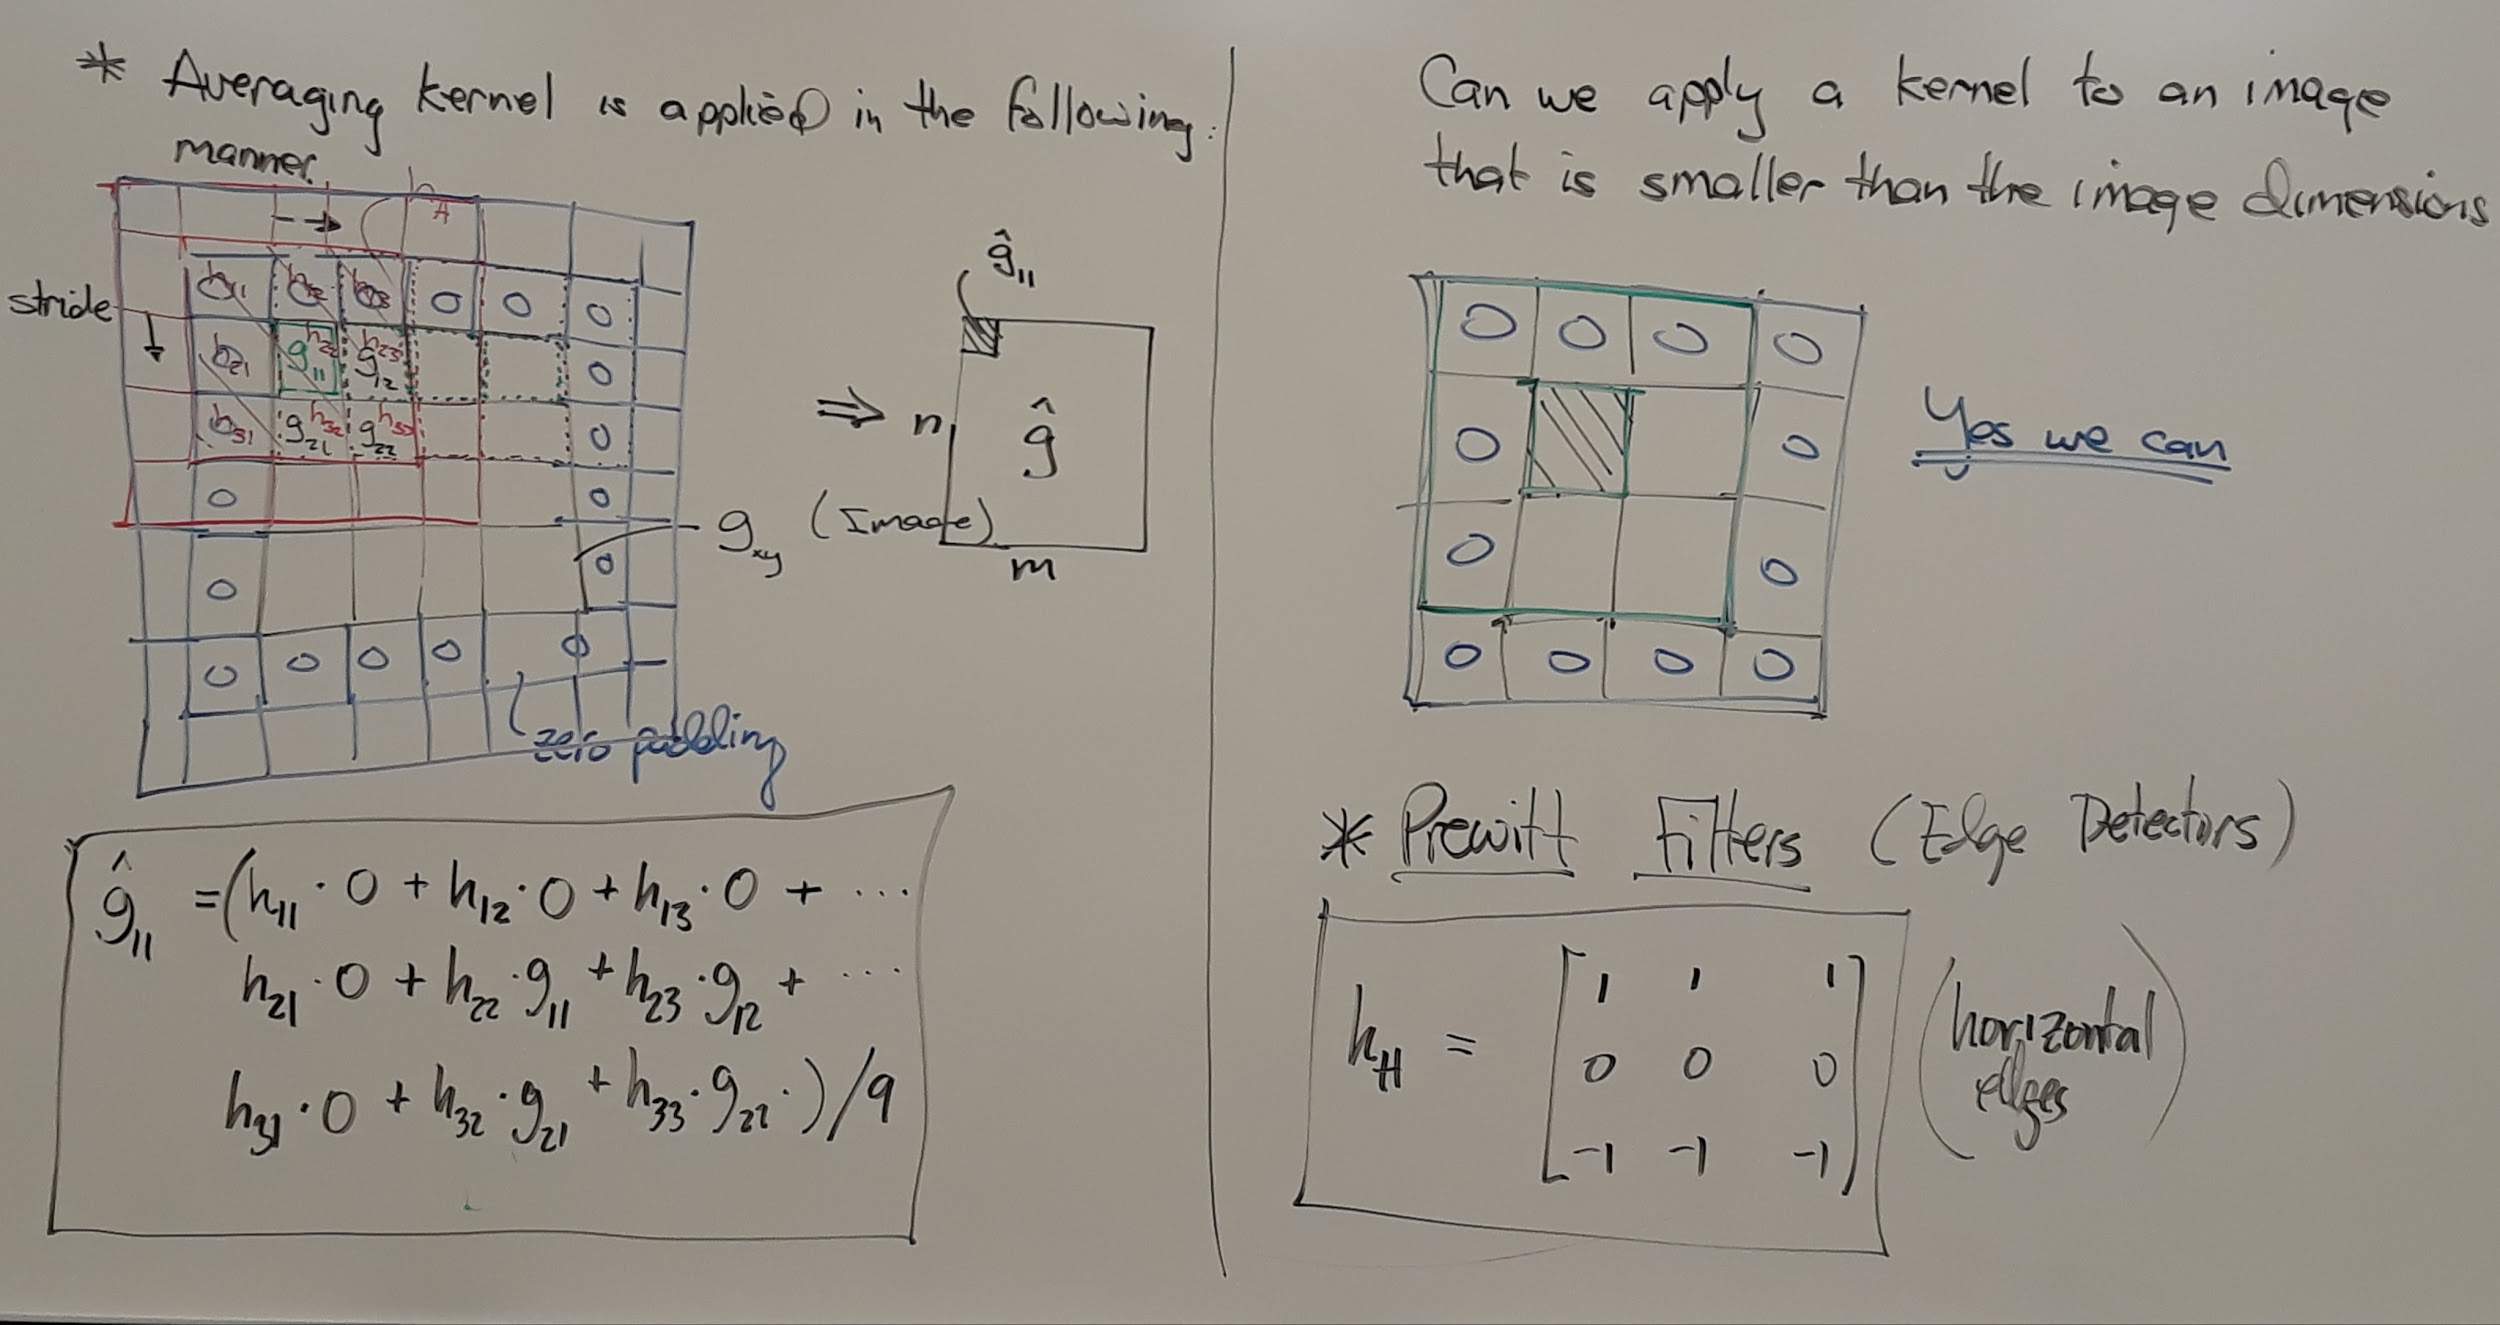 * Averaging kernel is applied in the following:
manner.
h
A
stride
h11 h12 h13 0 0 0
h21 g11 h22 g12 h23 0
h31 g21 h32 g22 h33 0
0 0
0 0
0 0 0 0 0
zero padding
gxy (Image)
⇒
ĝ11
n
ĝ
m
ĝ11 = (h11 · 0 + h12 · 0 + h13 · 0 + ...
h21 · 0 + h22 · g11 + h23 · g12 + ...
h31 · 0 + h32 · g21 + h33 · g22 ·) / 9
Can we apply a kernel to an image
that is smaller than the image dimensions
0 0 0 0
0 0
0 0
0 0 0 0
Yes we can
* Prewitt Filters (Edge Detectors)
hH = [1 1 1
0 0 0
-1 -1 -1]
(horizontal
edges)